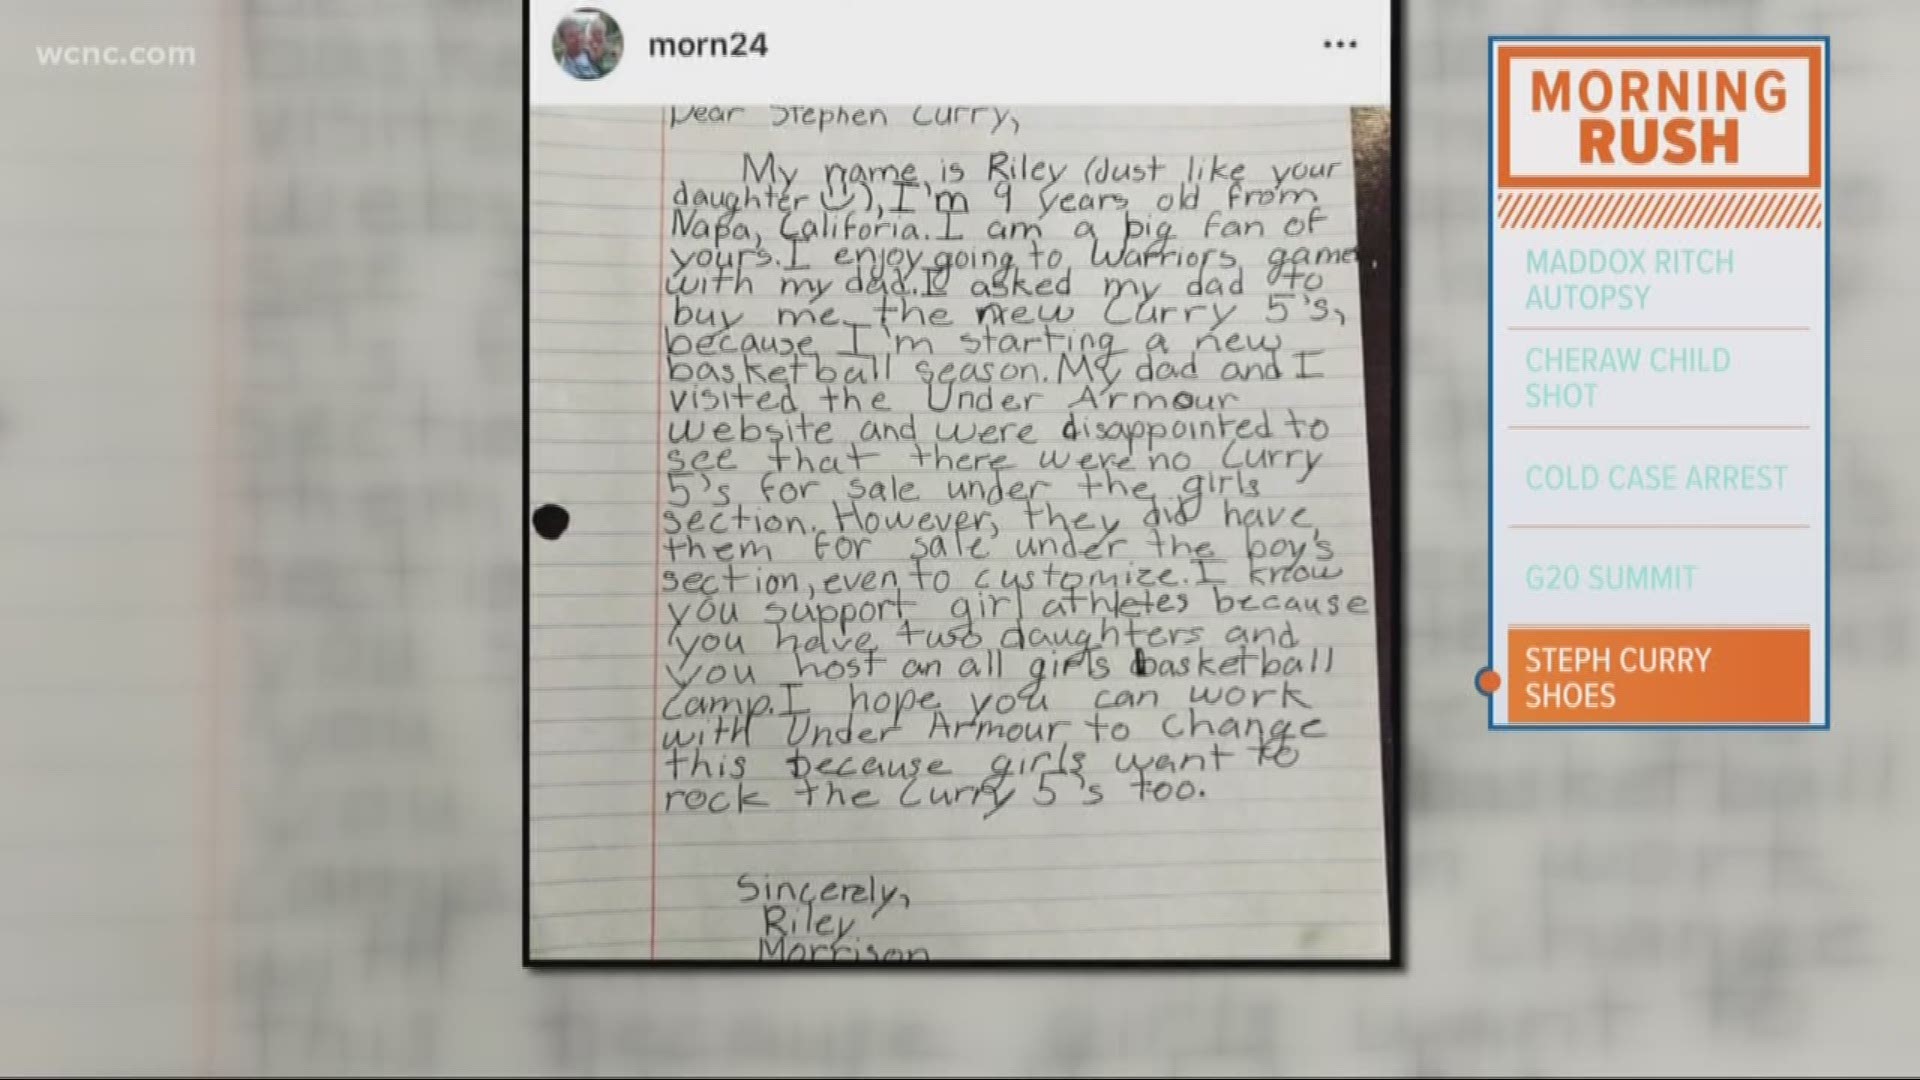 wcnc.com
morn24
Dear Stephen Curry,
My name is Riley (Just like your
daughter ☺), I'm 9 years old from
Napa, Califoria. I am a big fan of
yours. I enjoy going to Warriors game
with my dad. I asked my dad to
buy me the new Curry 5's,
because I'm starting a new
basketball season. My dad and I
visited the Under Armour
website and were disappointed to
see that there were no Curry
5's for sale under the girls
section. However, they did have
them for sale under the boy's
section, even to customize. I know
you support girl athletes because
you have two daughters and
you host an all girls basketball
camp. I hope you can work
with Under Armour to change
this because girls want to
rock the Curry 5's too.
Sincerely,
Riley
Morrison
MORNING
RUSH
MADDOX RITCH
AUTOPSY
CHERAW CHILD
SHOT
COLD CASE ARREST
G20 SUMMIT
STEPH CURRY
SHOES